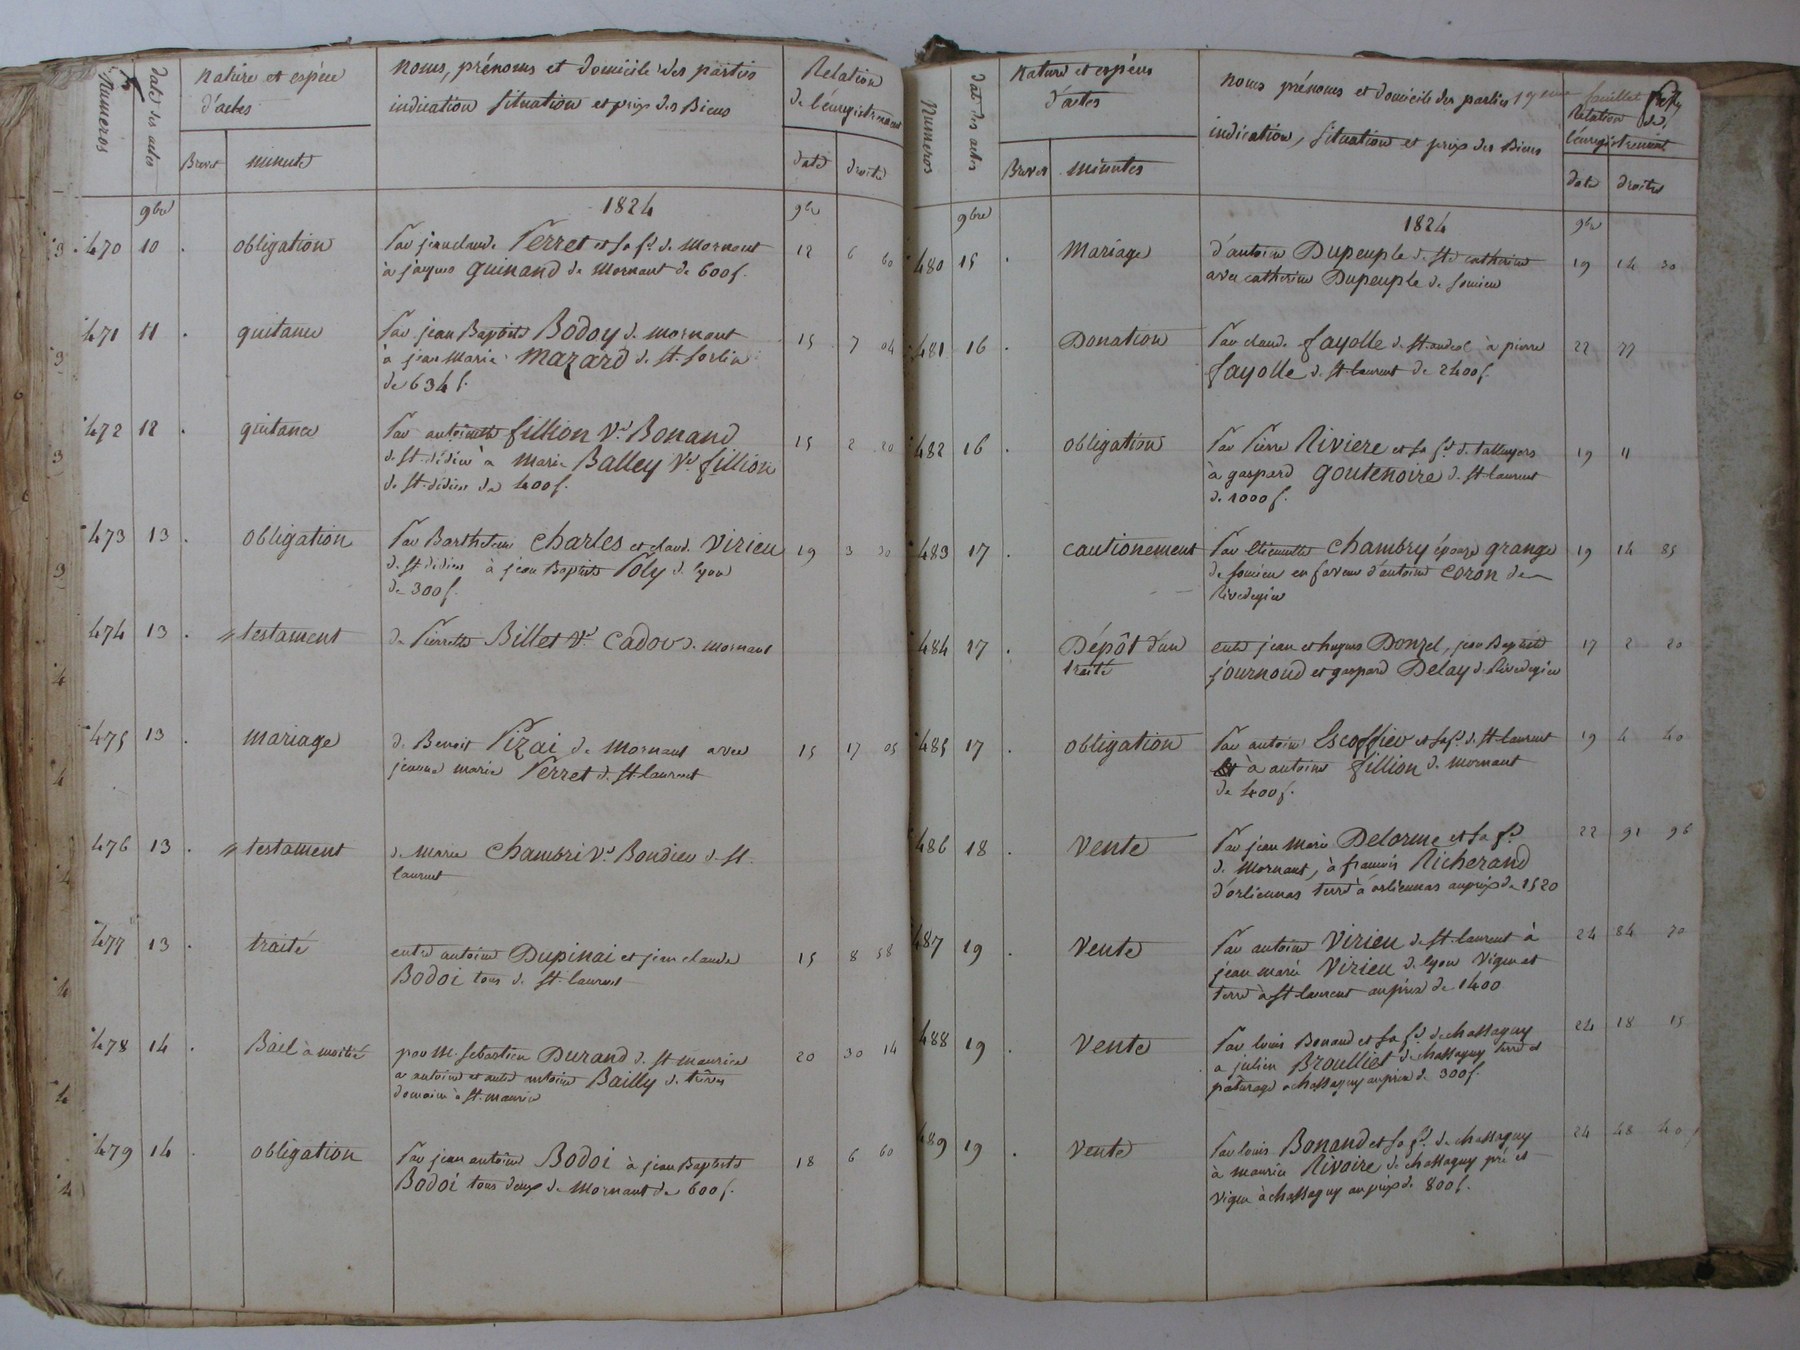 Numeros
date des actes
nature et espèce
d'actes
Brevet
minute
noms, prénoms et domicile des parties
indication situation et prix des Biens
Relation
de l'enregistrement
date
droits
9bre
1824
9bre
470 10 . obligation Par jean claude Perret et sa f.e de Mornant 12 6 60
à jaques guinand de Mornant de 600 f.
471 11 . quitance Par jean Baptiste Bodoy de mornant 15 7 04
à jean Marie Mazard de St. Sorlin
de 634 f.
472 12 . quitance Par antoinette fillion Ve Bonand 15 2 20
de St. didier à Marie Balley Ve fillion
de St. didier de 400 f.
473 13 . obligation Par Barthelemi Charles et claude Virieu 19 3 30
de St didier à jean Baptiste Poly de lyon
de 300 f.
474 13 . testament de Pierrette Billet Ve Cadou de mornant
475 13 . mariage de Benoit Pizai de Mornant avec 15 17 05
jeanne marie Perret de St laurent
476 13 . testament de Marie Chambri Ve Bondieu de St.
laurent
477 13 . traité entre antoine Dupinai et jean claude 15 8 58
Bodoi tous de St. laurent
478 14 . Bail à moitié par M. Sebastien Durand de St maurice 20 30 14
a antoine et autre antoine Bailly de
domaine à St. maurice
479 14 . obligation Par jean antoine Bodoi à jean Baptiste 18 6 60
Bodoi tous deux de Mornant de 600 f.
Numeros
dat des actes
nature et espèces
d'actes
Brevets
minutes
noms prénoms et domicile des parties
indication, situation et prix des Biens
feuillet
Relation de
l'enregistrement
date
droits
9bre
1824
9bre
480 15 . Mariage d'antoine Dupeuple de Ste catherine 19 14 30
avec catherine Dupeuple de Soucieu
481 16 . Donation Par claude fayolle de St. andeol à pierre 22 77
fayolle de St laurent de 2400 f.
482 16 . obligation Par Pierre Riviere et sa f.e de talluyers 19 11
à gaspard goutenoire de St laurent
de 1000 f.
483 17 . cautionement Par Etiennette Chambry épouse grange 19 14 85
de Soucieu en faveur d'antoine coron de
Rivedegier
484 17 . Dépôt d'un entre jean et hugues Donzel, jean Baptiste 17 2 20
traité journoud et gaspard Delay de Rivedegier
485 17 . obligation Par antoine Escoffier et sa f.e de St laurent 19 4 40
à antoine fillion de mornant
de 400 f.
486 18 . Vente Par jean Marie Delorme et sa f.e 22 91 96
de Mornant, à francois Richerand
d'orliennas terre à orliennas au prix de 1520
487 19 . Vente Par antoine Virieu de St. laurent à 24 84 70
jean marie Virieu de lyon Vigne et
terre à St laurent au prix de 1400
488 19 . Vente Par louis Bonand et sa f.e de chassagny 24 18 15
a julien Broulliet de chassagny terre et
paturage à chassagny au prix de 300 f.
489 19 . Vente Par louis Bonand et sa f.e de chassagny 24 48 40
à maurice Rivoire de chassagny pré et
Vigne à chassagny au prix de 800 f.